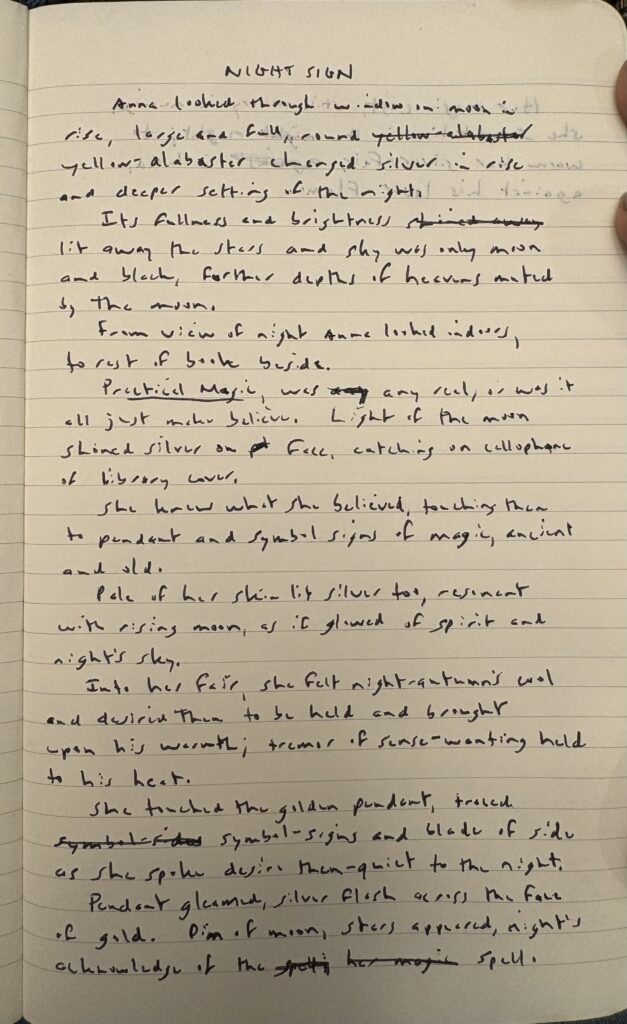 NIGHT SIGN
Anna looked through window on moon in
rise, large and full, round yellow-alabaster
yellow-alabaster changed silver in rise
and deeper setting of the night.
Its fullness and brightness shined away
lit away the stars and sky was only moon
and black, further depths of heavens muted
by the moon.
From view of night Anna looked indoors,
to rest of book beside.
Practical Magic, was any any real, or was it
all just make believe. Light of the moon
shined silver on face, catching on cellophane
of library cover.
She knew what she believed, touching then
to pendant and symbol signs of magic, ancient
and old.
Pale of her skin lit silver too, resonant
with rising moon, as if glowed of spirit and
night's sky.
Into her fair, she felt night-autumn's cool
and desired then to be held and brought
upon his warmth; tremor of sense-wanting held
to his heat.
She touched the golden pendant, traced
symbol-sides symbol-signs and blade of side
as she spoke desire then-quiet to the night.
Pendant gleamed, silver flash across the face
of gold. Dim of moon, stars appeared, night's
acknowledge of the spell; her magic spell.